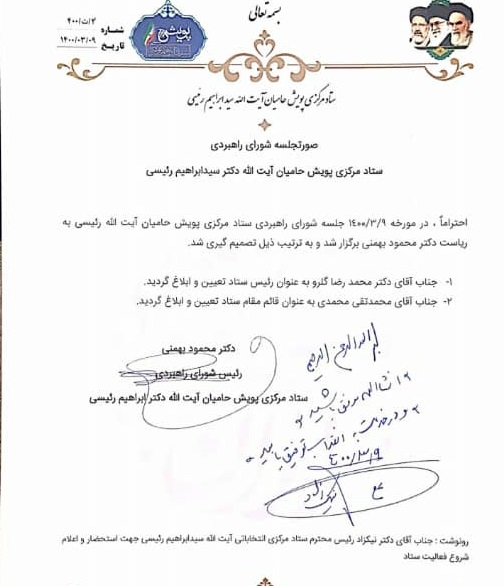 بسمه تعالی
شماره ۴۰۰/ت/۲
تاریخ ۱۴۰۰/۰۳/۰۹
پویش
ستاد مرکزی پویش حامیان آیت الله سید ابراهیم رئیسی
صورتجلسه شورای راهبردی
ستاد مرکزی پویش حامیان آیت الله دکتر سیدابراهیم رئیسی
احتراماً ، در مورخه ۱۴۰۰/۳/۹ جلسه شورای راهبردی ستاد مرکزی پویش حامیان آیت الله رئیسی به
ریاست دکتر محمود بهمنی برگزار شد و به ترتیب ذیل تصمیم گیری شد.
۱- جناب آقای دکتر محمد رضا گلرو به عنوان رئیس ستاد تعیین و ابلاغ گردید.
۲- جناب آقای محمدتقی محمدی به عنوان قائم مقام ستاد تعیین و ابلاغ گردید.
دکتر محمود بهمنی
رئیس شورای راهبردی
ستاد مرکزی پویش حامیان آیت الله دکتر ابراهیم رئیسی
بسم الله الرحمن الرحیم
انشاالله موفق باشید
و در خدمت به انقلاب توفیق یابید
۰۰/۳/۹
نیکزاد
رونوشت : جناب آقای دکتر نیکزاد رئیس محترم ستاد مرکزی انتخاباتی آیت الله سیدابراهیم رئیسی جهت استحضار و اعلام
شروع فعالیت ستاد